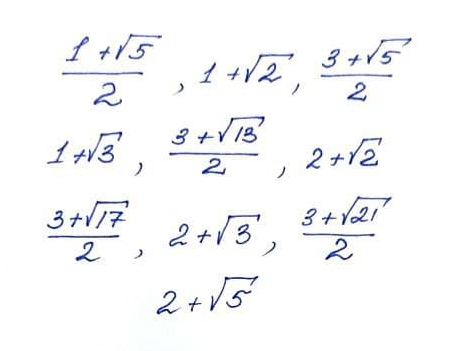 (1+√5)/2 , 1+√2 , (3+√5)/2
1+√3 , (3+√13)/2 , 2+√2
(3+√17)/2 , 2+√3 , (3+√21)/2
2+√5